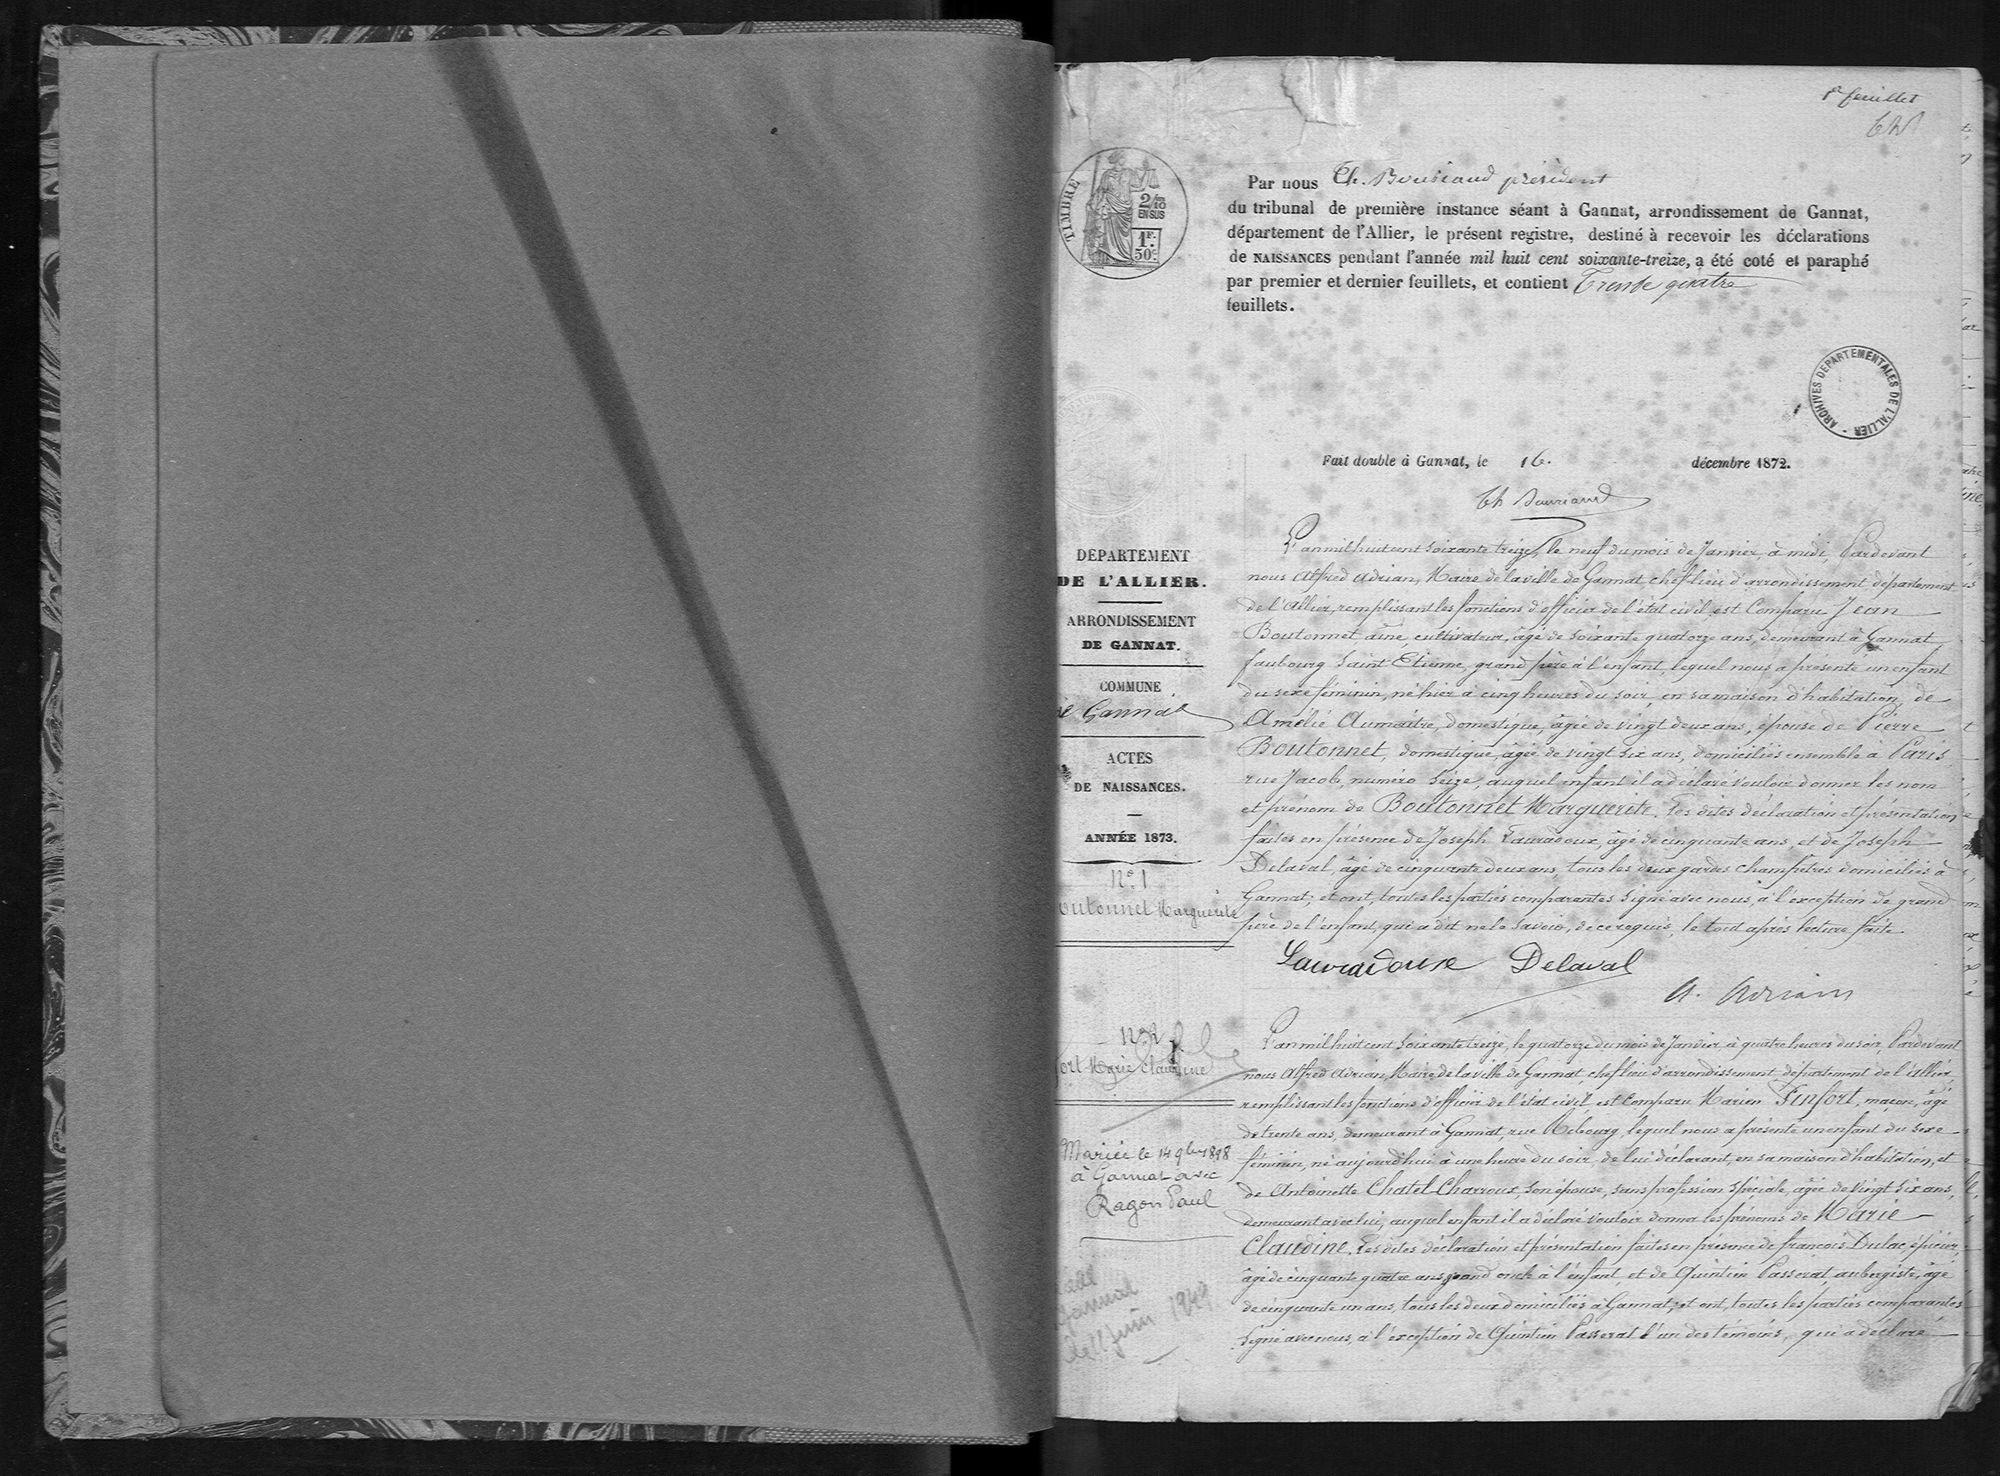 1er feuillet
TIMBRE
2/10
EN SUS
1F.
50c.
Par nous Th. président
du tribunal de première instance séant à Gannat, arrondissement de Gannat,
département de l'Allier, le présent registre, destiné à recevoir les déclarations
de NAISSANCES pendant l'année mil huit cent soixante-treize, a été coté et paraphé
par premier et dernier feuillets, et contient Trente quatre
feuillets.
ARCHIVES DEPARTEMENTALES DE L'ALLIER
Fait double à Gannat, le 16. décembre 1872.
DEPARTEMENT
DE L'ALLIER.
ARRONDISSEMENT
DE GANNAT.
COMMUNE
de Gannat
ACTES
DE NAISSANCES.
ANNÉE 1873.
N° 1
outonnet Marguerite
L'an mil huit cent soixante treize, le neuf du mois de Janvier, à midi, Pardevant
nous Alfred Adrian, Maire de la ville de Gannat, chef lieu d'arrondissement département
de l'Allier, remplissant les fonctions d'officier de l'état civil, est Comparu Jean
Boutonnet aîné, cultivateur, âgé de soixante quatorze ans, demeurant à Gannat
faubourg Saint Etienne, grand père à l'enfant, lequel nous a présenté un enfant
du sexe féminin, né hier à cinq heures du soir, en sa maison d'habitation, de
Amélie Aumaitre, domestique, âgée de vingt deux ans, épouse de Pierre
Boutonnet, domestique, âgé de vingt six ans, domiciliés ensemble à Paris
rue Jacob, numéro seize, auquel enfant il a déclaré vouloir donner les nom
et prénom de Boutonnet Marguerite. Les dites déclaration et présentation
faites en présence de Joseph Lauradoux, âgé de cinquante ans, et de Joseph
Delaval, âgé de cinquante deux ans, tous les deux gardes champêtres domiciliés à
Gannat; et ont, toutes les parties comparantes signé avec nous, à l'exception de grand
père de l'enfant, qui a dit ne le savoir, de ce requis, le tout après lecture faite.
Lauradoux Delaval
A. Adrian
N° 2
fort Marie Claudine
Mariée le 14 9bre 1898
à Gannat avec
Ragon Paul
Gannat
le 11 Juin
L'an mil huit cent soixante treize, le quatorze du mois de Janvier à quatre heures du soir, Pardevant
nous Alfred Adrian, Maire de la ville de Gannat, chef lieu d'arrondissement département de l'Allier,
remplissant les fonctions d'officier de l'état civil est Comparu Marien Finfort, maçon, âgé
de trente ans, demeurant à Gannat, rue lequel nous a présenté un enfant du sexe
féminin, né aujourd'hui à une heure du soir, de lui déclarant, en sa maison d'habitation, et
de Antoinette Chatel Charroux, son épouse, sans profession spéciale, âgée de vingt six ans,
demeurant avec lui, auquel enfant il a déclaré vouloir donner les prénoms de Marie
Claudine. Les dites déclaration et présentation faites en présence de françois Dulac, épicier,
âgé de cinquante quatre ans, grand oncle à l'enfant, et de Quintien Passerat, aubergiste, âgé
de cinquante un ans, tous les deux domiciliés à Gannat; et ont, toutes les parties comparantes
signé avec nous, à l'exception de Quintien Passerat l'un des témoins, qui a déclaré